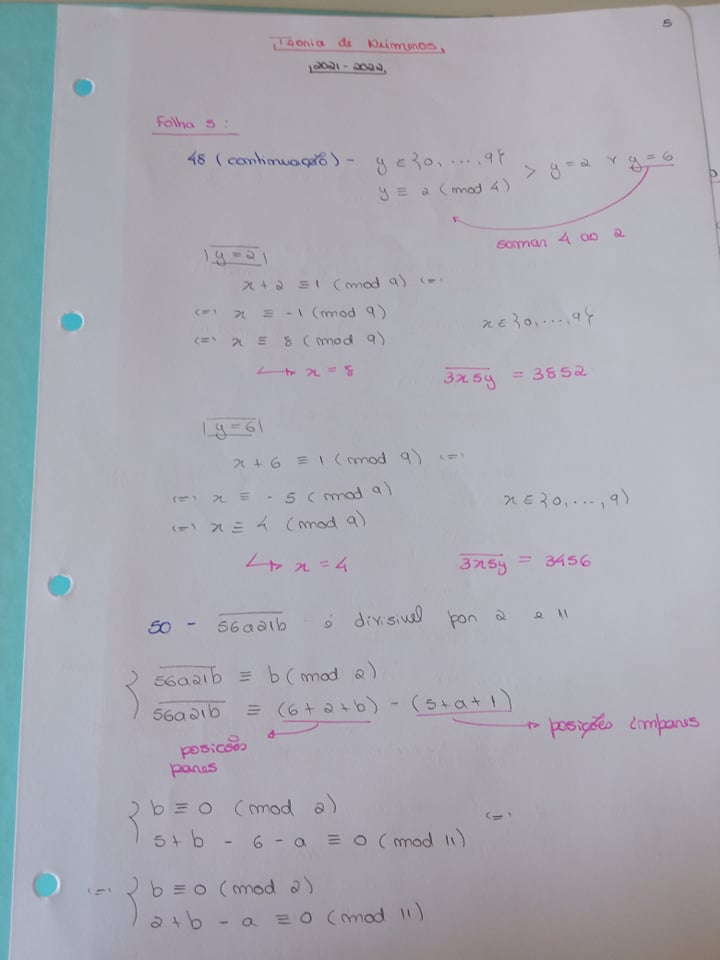 5
Teoria de Números,
2021-2022,
Folha 5:
48 (continuação) - y ∈ {0, ..., 9}
y ≡ 2 (mod 4) > y = 2 ∨ y = 6
somar 4 ao 2
|y = 2|
x + 2 ≡ 1 (mod 9) (=)
(=) x ≡ -1 (mod 9)
x ∈ {0, ..., 9}
(=) x ≡ 8 (mod 9)
↳ x = 8
3x5y = 3852
|y = 6|
x + 6 ≡ 1 (mod 9) (=)
(=) x ≡ - 5 (mod 9)
x ∈ {0, ..., 9)
(=) x ≡ 4 (mod 9)
↳ x = 4
3x5y = 3456
50 - 56a21b é divisivel por 2 e 11
56a21b ≡ b (mod 2)
56a21b ≡ (6 + 2 + b) - (5 + a + 1)
posições pares
posições ímpares
b ≡ 0 (mod 2)
5 + b - 6 - a ≡ 0 (mod 11) (=)
(=) b ≡ 0 (mod 2)
2 + b - a ≡ 0 (mod 11)